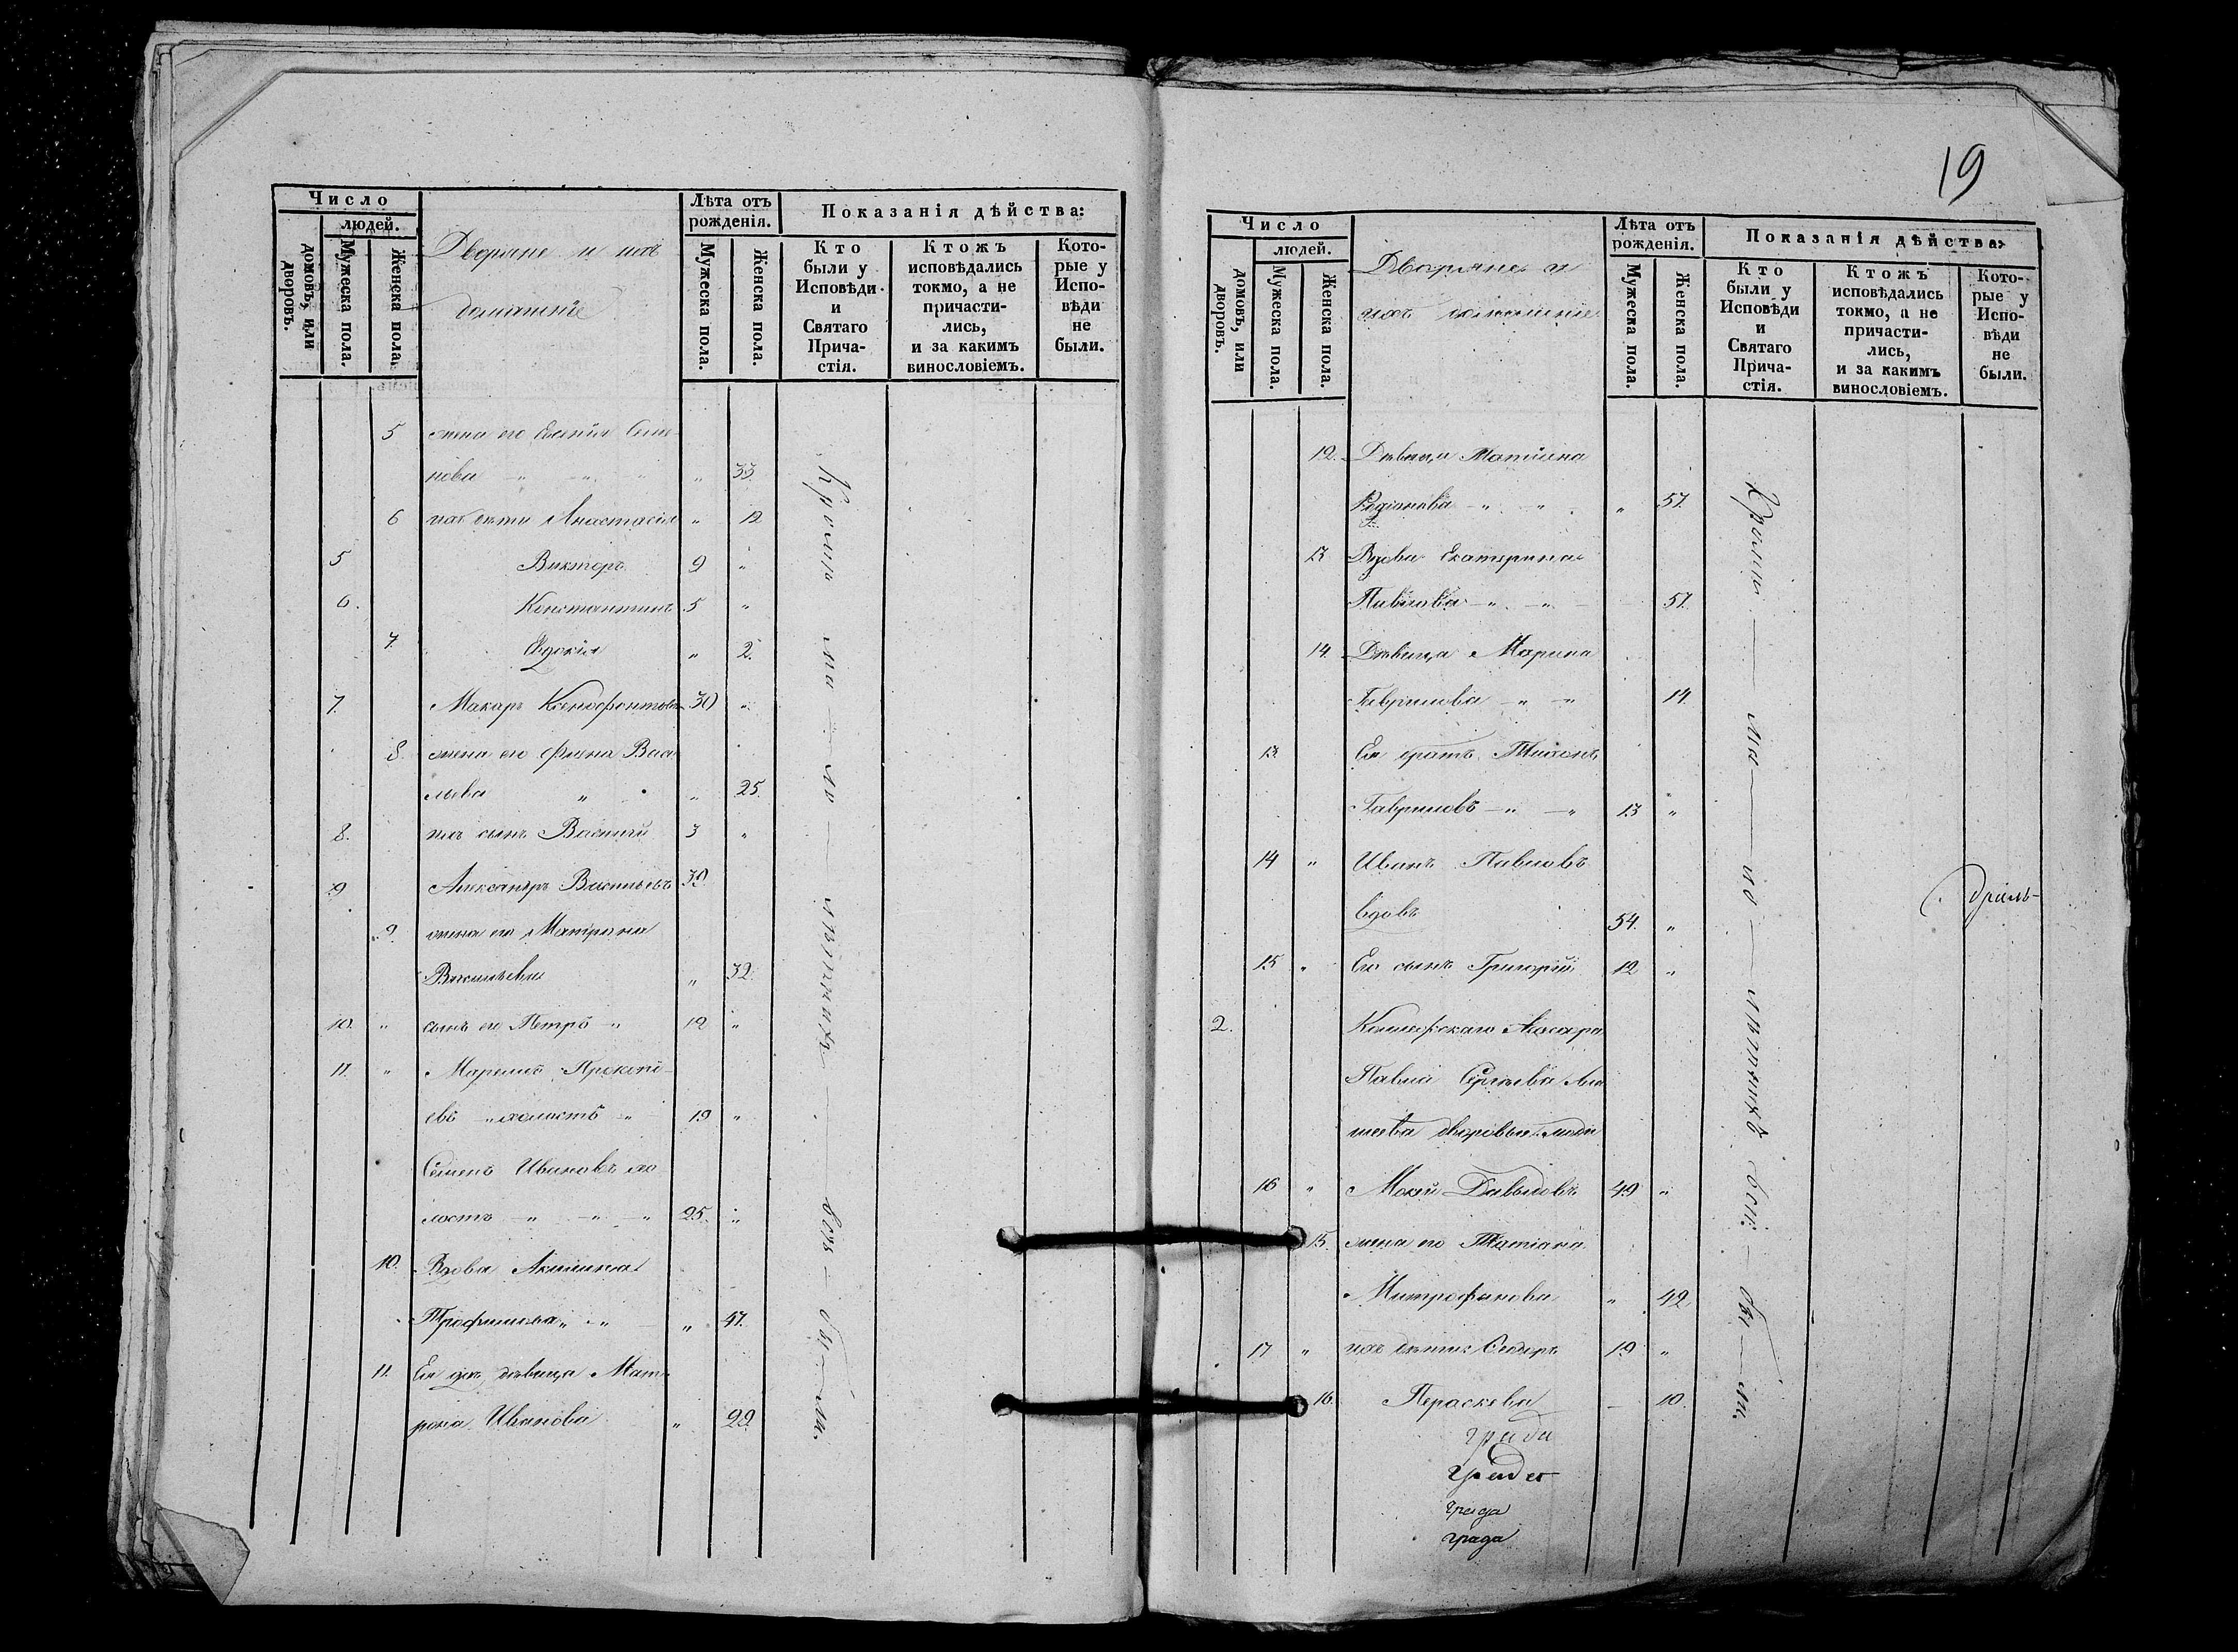 Число
людей.
домовъ, или дворовъ.
Мужеска пола.
Женска пола.
Дворяне и ихъ
домашніе
Лѣта отъ рожденія.
Мужеска пола.
Женска пола.
Показанія дѣйства:
Кто были у Исповѣди и Святаго Прича-стія.
Ктожъ исповѣдались токмо, а не причасти-лись, и за какимъ винословіемъ.
Кото-рые у Испо-вѣди не были.
5 жена его Евгенія Семе-
нова " 33
6 ихъ дѣти Анастасія " 12
5 Викторъ 9 "
6. Константинъ 5 "
7. Евдокія " 2.
7. Макаръ Ксенофонтовъ 30 "
8. жена его Васи-
льева " 25.
8. ихъ сынъ Василій 3 "
9 Александръ Васильевъ 30
9. жена его Матрона
Васильева " 32.
10. " сынъ его Петръ " 12 "
11. " Прокопі-
евъ " холостъ " 19 "
Семенъ Ивановъ хо
лостъ " " " 25. "
10. Вдова Акилина
Трофимова " " " 47.
11. Ея дочь дѣвица Мат-
рона Иванова " 22
19
Число
людей.
домовъ, или дворовъ.
Мужеска пола.
Женска пола.
Дворяне и
ихъ домашніе
Лѣта отъ рожденія.
Мужеска пола.
Женска пола.
Показанія дѣйства:
Кто были у Исповѣди и Святаго Прича-стія.
Ктожъ исповѣдались токмо, а не причасти-лись, и за какимъ винословіемъ.
Кото-рые у Испо-вѣди не были.
12. Дѣвица
Родіонова " " " 57.
13 Вдова Екатерина
Павлова " " 57.
14. Дѣвица Марина
Гаврилова " " 14.
13. Ея братъ
Гавриловъ " " 13 "
14 " Иванъ Павловъ
вдовъ 54. "
15 " Его сынъ Григорій 12 "
2.
Павла Сергѣева
дворовые люди
16 " Мокій Давыдовъ 49 "
15. жена его Татіана
Митрофанова " 42
17 " ихъ дѣти: Сидоръ 19 "
16. Параскева 10.
града
града
града
града